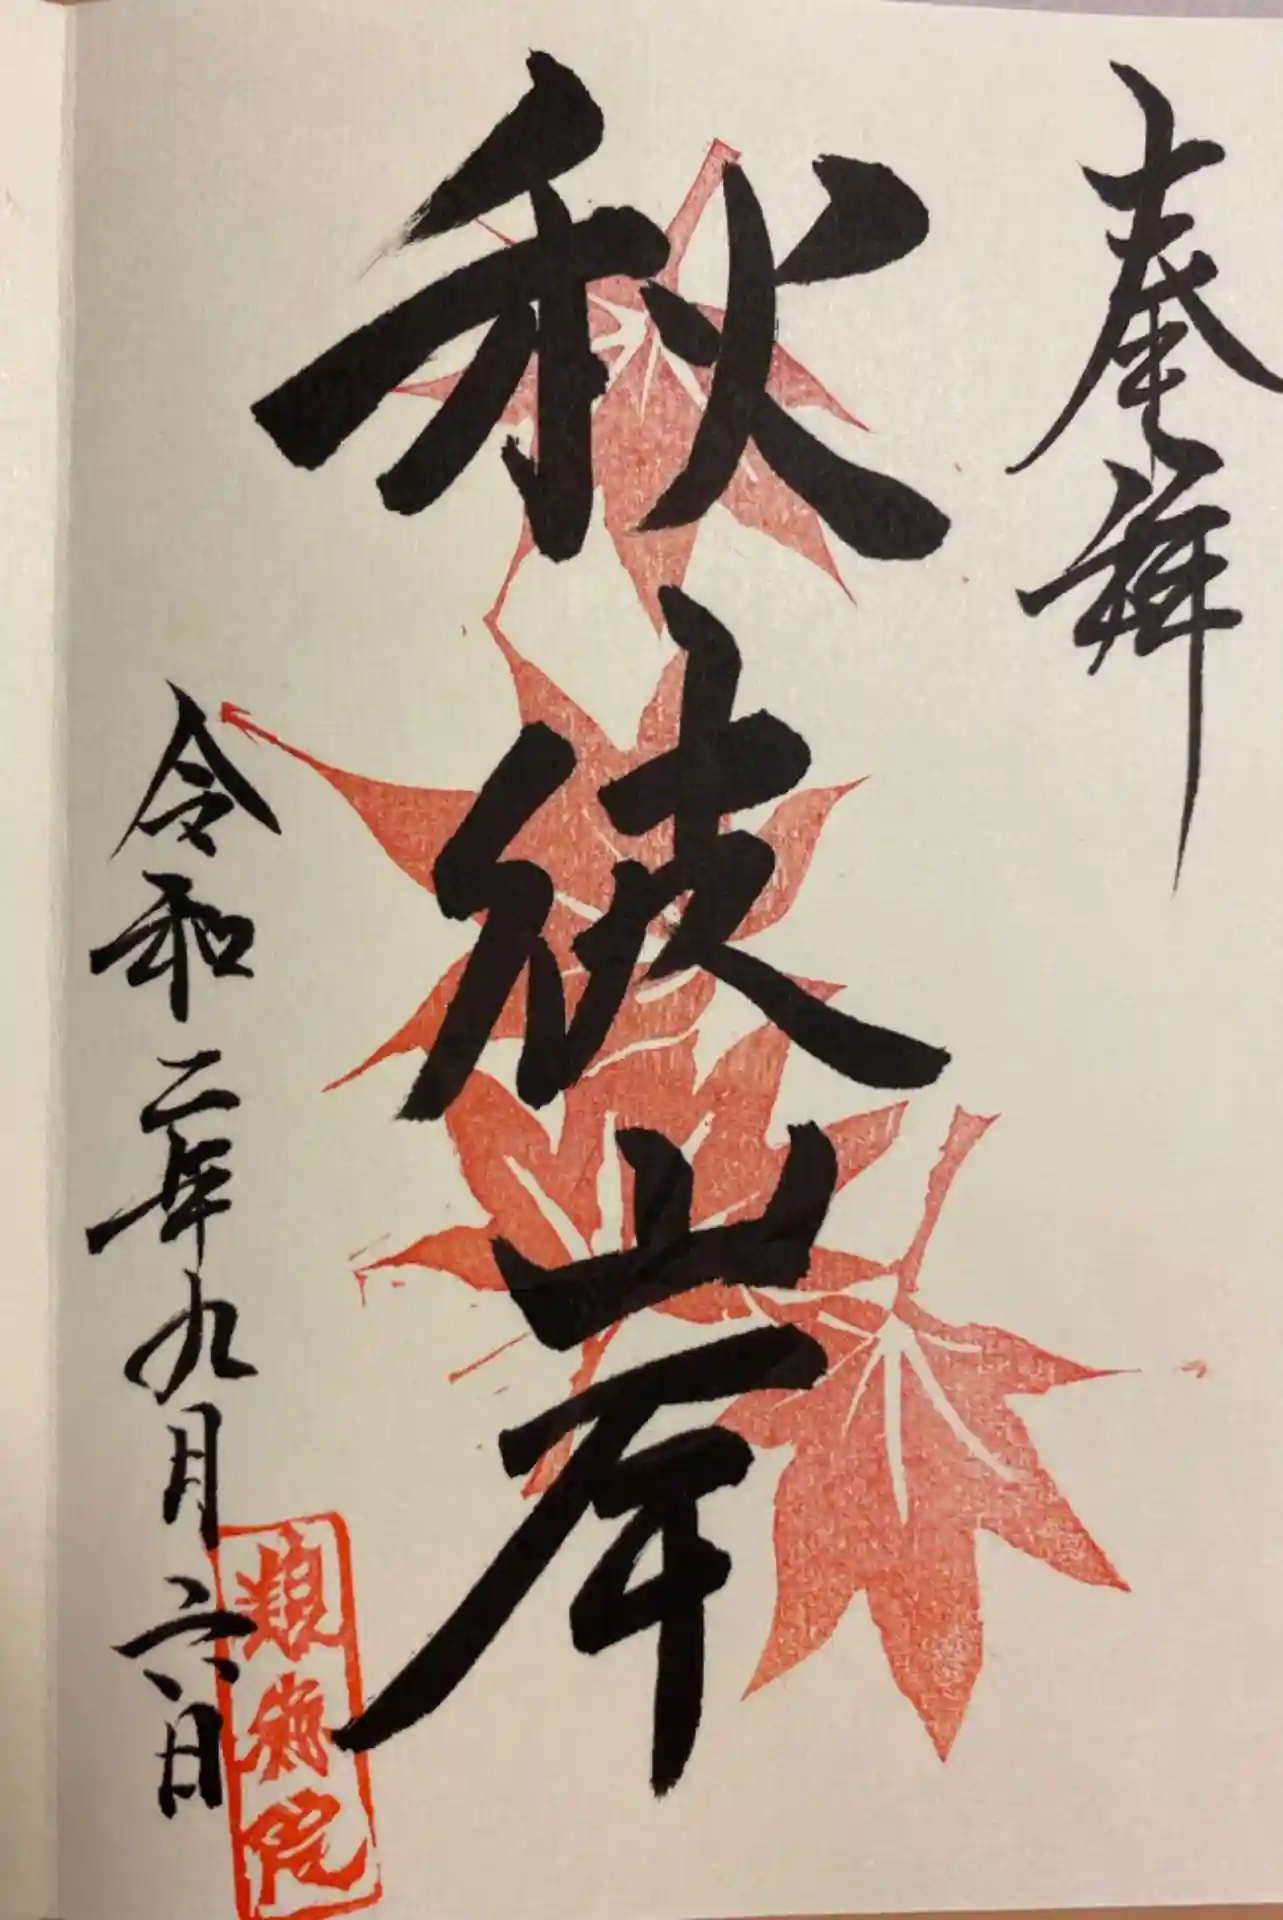 奉拝
秋彼岸
令和二年九月六日